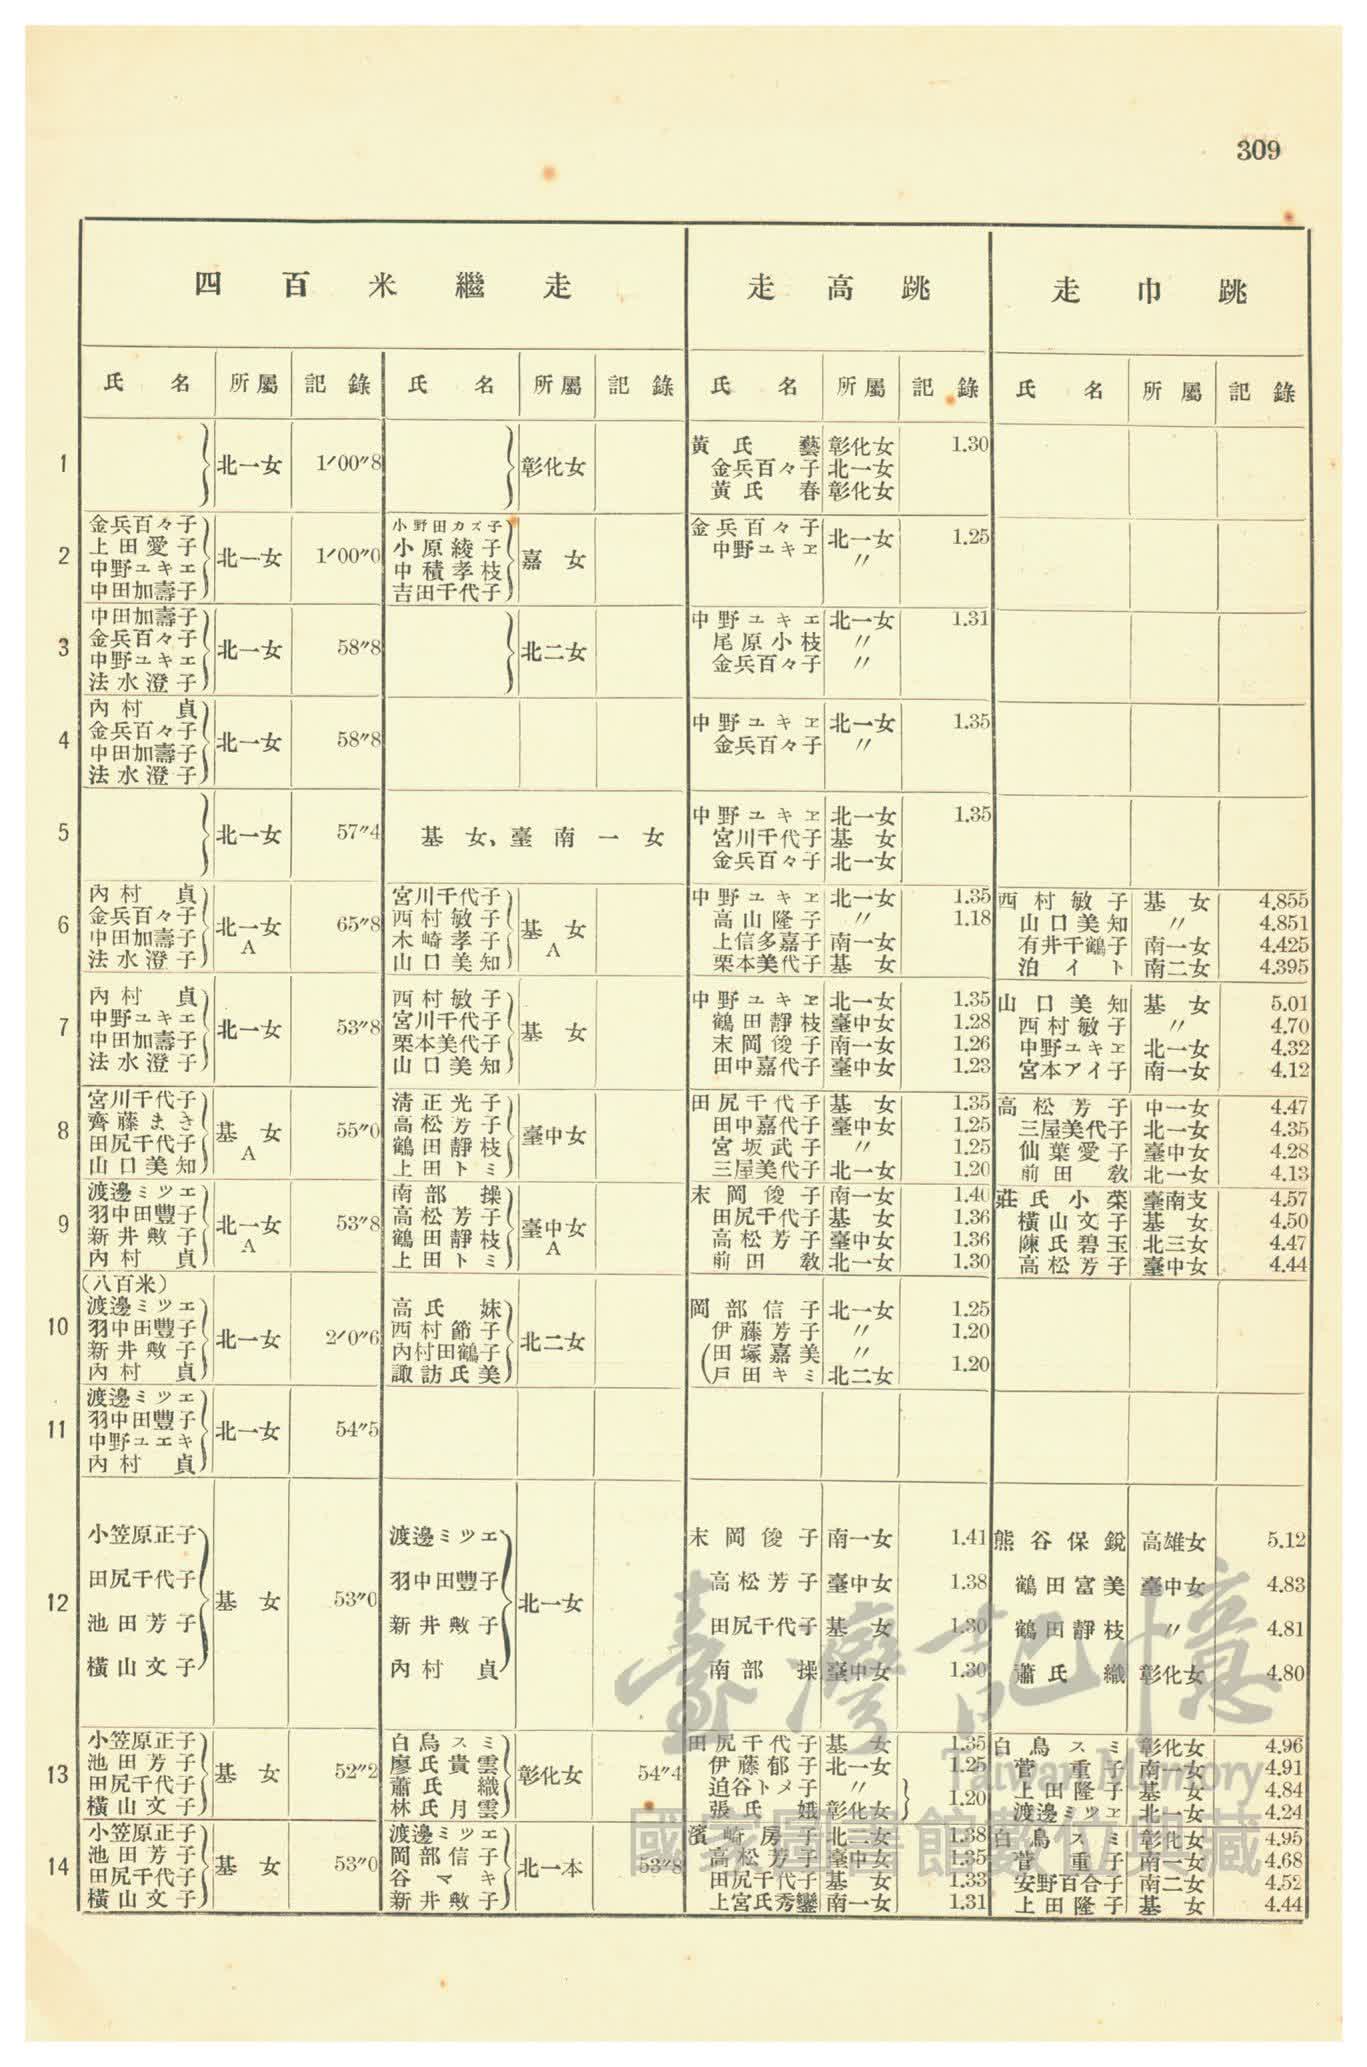 309
四百米繼走 走高跳 走巾跳
氏名 所屬 記錄 氏名 所屬 記錄 氏名 所屬 記錄 氏名 所屬 記錄
1 北一女 1′00″8 彰化女 黃氏藝 彰化女 1.30
金兵百々子 北一女
黃氏春 彰化女
2 金兵百々子 北一女 1′00″0 小野田カズ子 嘉女 金兵百々子 北一女 1.25
上田愛子 小原綾子 中野ユキヱ 〃
中野ユキエ 中積孝枝
中田加壽子 吉田千代子
3 中田加壽子 北一女 58″8 北二女 中野ユキエ 北一女 1.31
金兵百々子 尾原小枝 〃
中野ユキエ 金兵百々子 〃
法水澄子
4 內村貞 北一女 58″8 中野ユキヱ 北一女 1.35
金兵百々子 金兵百々子 〃
中田加壽子
法水澄子
5 北一女 57″4 基女、臺南一女 中野ユキヱ 北一女 1.35
宮川千代子 基女
金兵百々子 北一女
6 內村貞 北一女A 65″8 宮川千代子 基女A 中野ユキヱ 北一女 1.35 西村敏子 基女 4.855
金兵百々子 西村敏子 高山隆子 〃 1.18 山口美知 〃 4.851
中田加壽子 木崎孝子 上信多嘉子 南一女 有井千鶴子 南一女 4.425
法水澄子 山口美知 栗本美代子 基女 泊イト 南二女 4.395
7 內村貞 北一女 53″8 西村敏子 基女 中野ユキヱ 北一女 1.35 山口美知 基女 5.01
中野ユキエ 宮川千代子 鶴田靜枝 臺中女 1.28 西村敏子 〃 4.70
中田加壽子 栗本美代子 末岡俊子 南一女 1.26 中野ユキヱ 北一女 4.32
法水澄子 山口美知 田中嘉代子 臺中女 1.23 宮本アイ子 南一女 4.12
8 宮川千代子 基女A 55″0 清正光子 臺中女 田尻千代子 基女 1.35 高松芳子 中一女 4.47
齊藤まき 高松芳子 田中嘉代子 臺中女 1.25 三屋美代子 北一女 4.35
田尻千代子 鶴田靜枝 宮坂武子 〃 1.25 仙葉愛子 臺中女 4.28
山口美知 上田トミ 三屋美代子 北一女 1.20 前田敎 北一女 4.13
9 渡邊ミツエ 北一女A 53″8 南部操 臺中女A 末岡俊子 南一女 1.40 莊氏小荣 臺南支 4.57
羽中田豐子 高松芳子 田尻千代子 基女 1.36 橫山文子 基女 4.50
新井敷子 鶴田靜枝 高松芳子 臺中女 1.36 陳氏碧玉 北三女 4.47
內村貞 上田トミ 前田敎 北一女 1.30 高松芳子 臺中女 4.44
(八百米)
10 渡邊ミツエ 北一女 2′0″6 高氏妹 北二女 岡部信子 北一女 1.25
羽中田豐子 西村節子 伊藤芳子 〃 1.20
新井敷子 內村田鶴子 田塚嘉美 〃 1.20
內村貞 諏訪氏美 戸田キミ 北二女
11 渡邊ミツエ 北一女 54″5
羽中田豐子
中野ユエキ
內村貞
12 小笠原正子 基女 53″0 渡邊ミツエ 北一女 末岡俊子 南一女 1.41 熊谷保銳 高雄女 5.12
田尻千代子 羽中田豐子 高松芳子 臺中女 1.38 鶴田富美 臺中女 4.83
池田芳子 新井敷子 田尻千代子 基女 1.30 鶴田靜枝 〃 4.81
橫山文子 內村貞 南部操 臺中女 1.30 蕭氏織 彰化女 4.80
13 小笠原正子 基女 52″2 白鳥スミ 彰化女 54″4 田尻千代子 基女 1.35 白鳥スミ 彰化女 4.96
池田芳子 廖氏貴雲 伊藤郁子 北一女 1.25 菅重子 南一女 4.91
田尻千代子 蕭氏織 迫谷トメ子 〃 1.20 上田隆子 基女 4.84
橫山文子 林氏月雲 張氏娥 彰化女 渡邊ミツエ 北一女 4.24
14 小笠原正子 基女 53″0 渡邊ミツエ 北一本 53″8 濱崎房子 北二女 1.38 白鳥スミ 彰化女 4.95
池田芳子 岡部信子 高松芳子 臺中女 1.35 菅重子 南一女 4.68
田尻千代子 谷マキ 田尻千代子 基女 1.33 安野百合子 南二女 4.52
橫山文子 新井敷子 上宮氏秀鑾 南一女 1.31 上田隆子 基女 4.44
臺灣記憶
Taiwan Memory
國家圖書館數位典藏